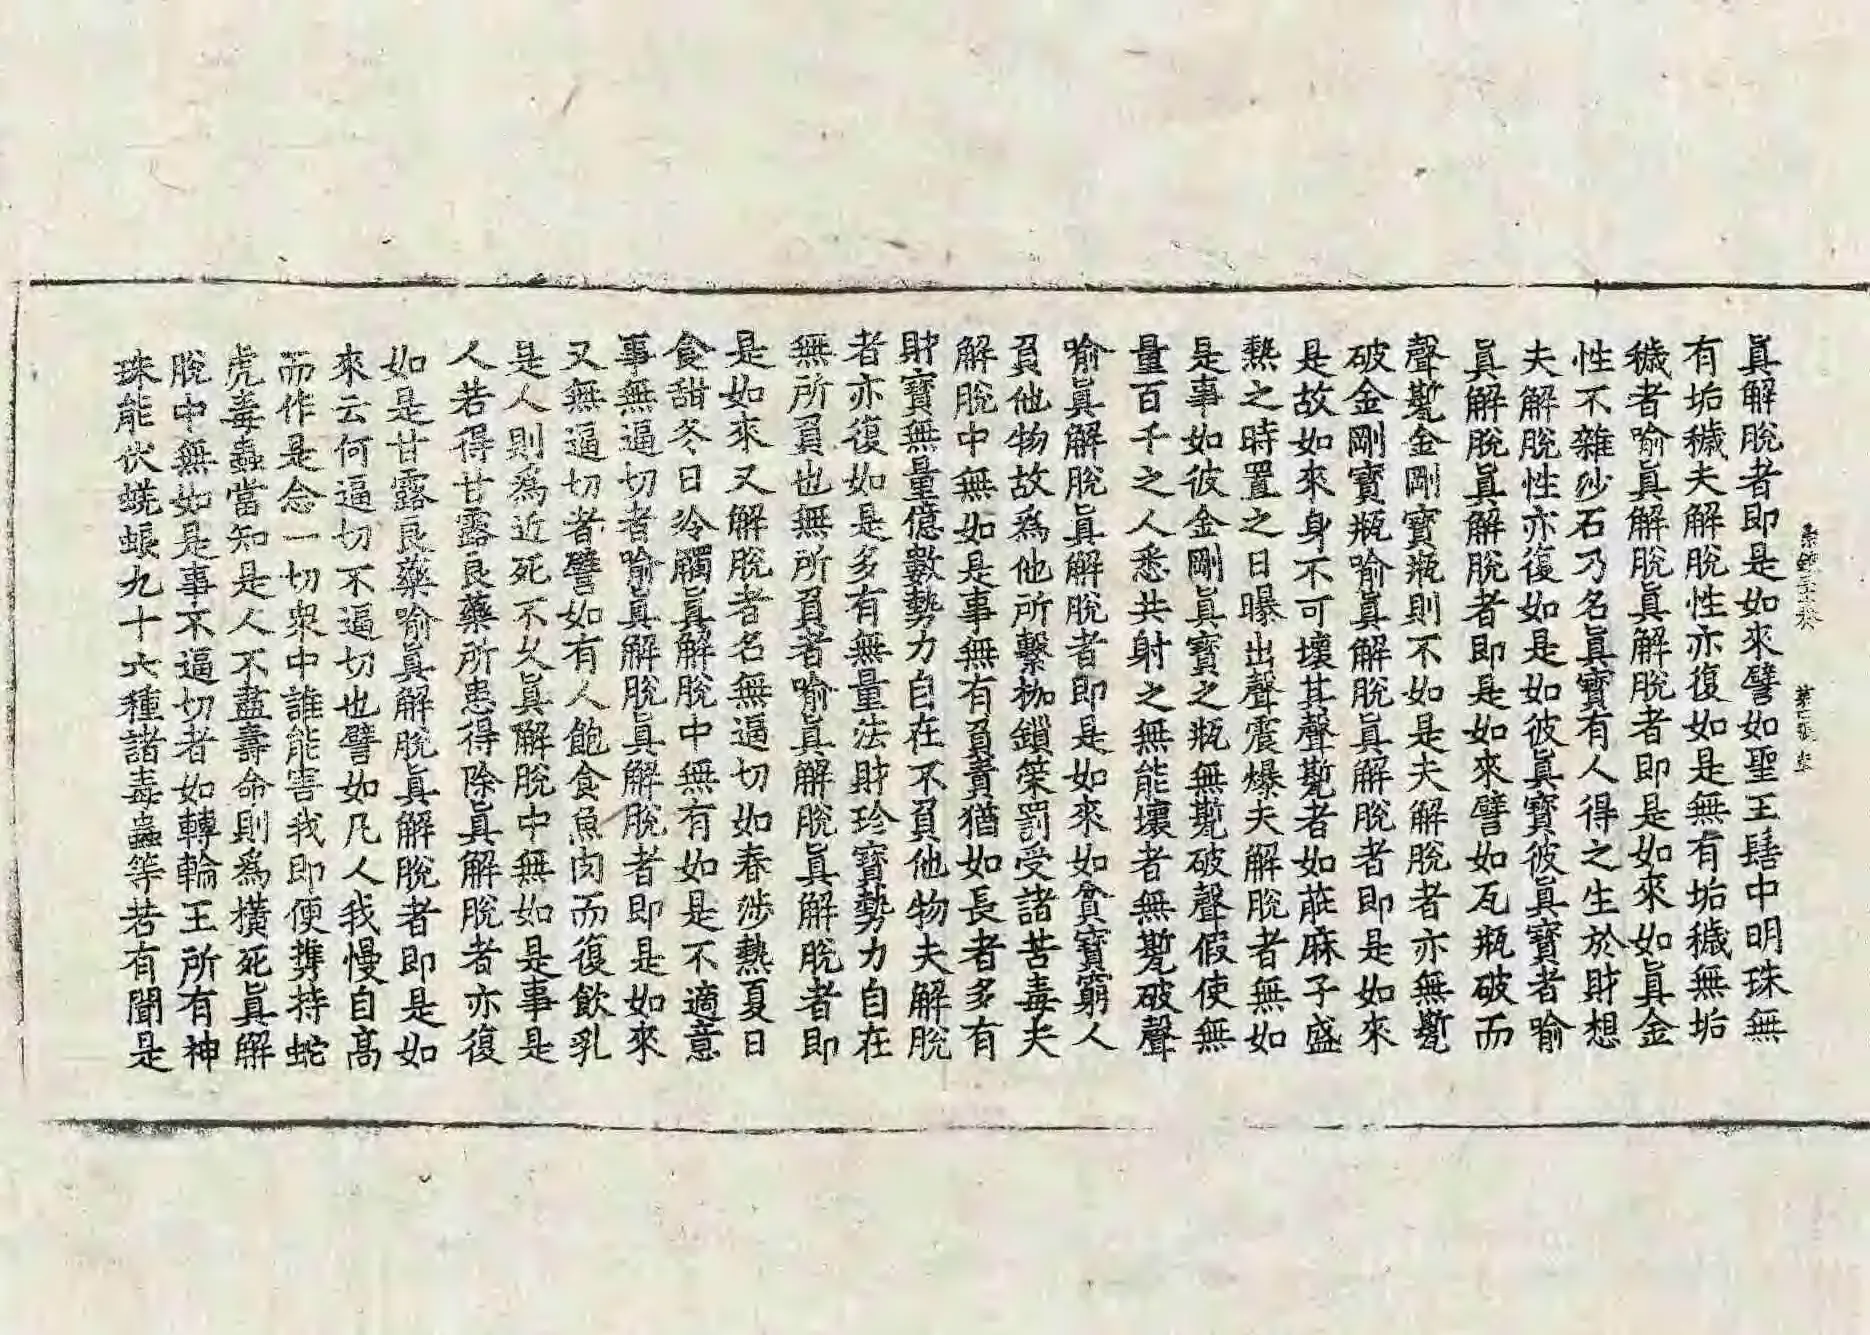 眞解脫者即是如來譬如聖王髻中明珠無
有垢穢夫解脫性亦復如是無有垢穢無垢
穢者喻眞解脫眞解脫者即是如來如眞金
性不雜沙石乃名眞寶有人得之生於財想
夫解脫性亦復如是如彼眞寶彼眞寶者喻
眞解脫眞解脫者即是如來譬如瓦瓶破而
聲㽄金剛寶瓶則不如是夫解脫者亦無㽄
破金剛寶瓶喻眞解脫眞解脫者即是如來
是故如來身不可壞其聲㽄者如萉麻子盛
熱之時置之日曝出聲震爆夫解脫者無如
是事如彼金剛眞寶之瓶無㽄破聲假使無
量百千之人悉共射之無能壞者無㽄破聲
喻眞解脫眞解脫者即是如來如貧寶窮人
負他物故爲他所繫枷鎖策罰受諸苦毒夫
解脫中無如是事無有負責猶如長者多有
財寶無量億數勢力自在不負他物夫解脫
者亦復如是多有無量法財珍寶勢力自在
無所負也無所負者喻眞解脫眞解脫者即
是如來又解脫者名無逼切如春涉熱夏日
食甜冬日冷觸眞解脫中無有如是不適意
事無逼切者喻眞解脫眞解脫者即是如來
又無逼切者譬如有人飽食魚肉而復飲乳
是人則爲近死不久眞解脫中無如是事是
人若得甘露良藥所患得除眞解脫者亦復
如是甘露良藥喻眞解脫眞解脫者即是如
來云何逼切不逼切也譬如凡人我慢自高
而作是念一切衆中誰能害我即便携持蛇
虎毒蟲當知是人不盡壽命則爲橫死眞解
脫中無如是事不逼切者如轉輪王所有神
珠能伏蜣蜋九十六種諸毒蟲等若有聞是